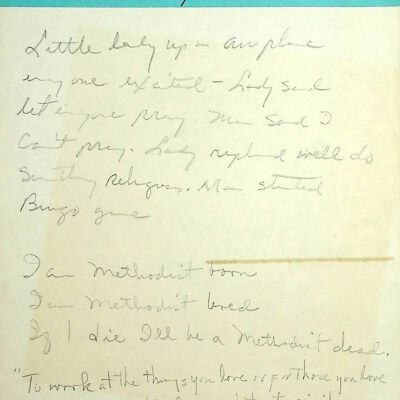 Little lady up in airplane
everyone excited - Lady said
let everyone pray. Man said I
Can't pray. Lady replied well do
Something religious. Man started
Bingo game
I am Methodist born
I am Methodist bred
If I die I'll be a Methodist dead.
"To work at the things you love or for those you love